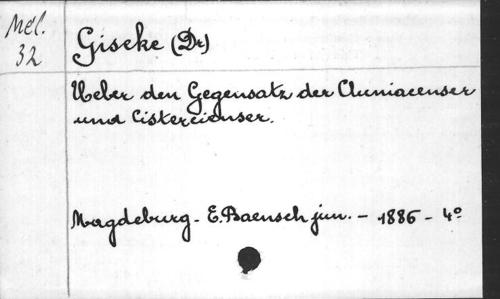 Mél.
32
Giseke (Dr)
Ueber den Gegensatz der Cluniacenser
und Cistercienser.
Magdeburg - E. Baensch jun. - 1886 - 4º